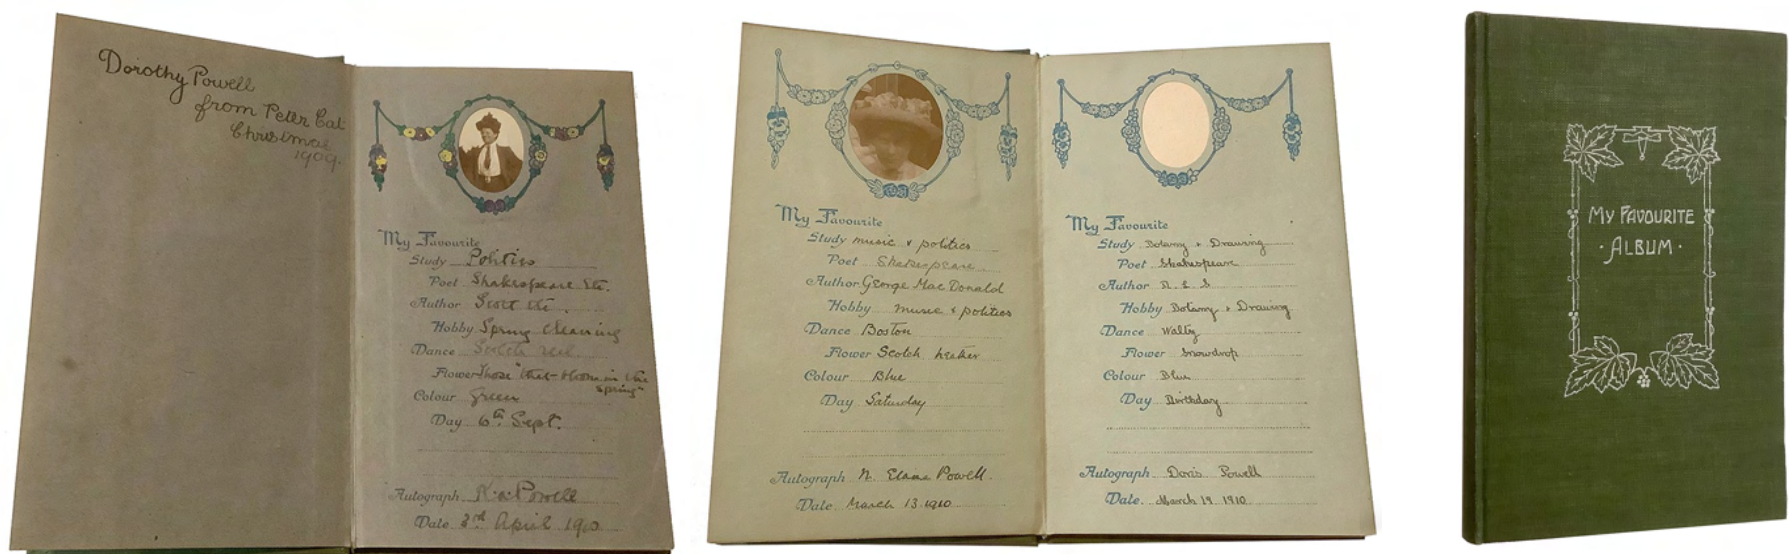 Dorothy Powell
from Peter Cat
Christmas
1909.
My Favourite
Study Politics
Poet Shakespeare Etc.
Author Scott etc.
Hobby Spring Cleaning
Dance Scotch reel
Flower Those "that bloom in the
spring"
Colour Green
Day 6th Sept.
Autograph Powell
Date 3rd April 1910
My Favourite
Study music & politics
Poet Shakespeare.
Author George MacDonald
Hobby music & politics
Dance Boston
Flower Scotch heather
Colour Blue
Day Saturday
Autograph N. Elaine Powell.
Date March 13 1910
My Favourite
Study Botany & Drawing
Poet Shakespeare
Author R. L. S
Hobby Botany & Drawing
Dance Waltz
Flower Snowdrop
Colour Blue
Day Birthday
Autograph Doris Powell
Date. March 19 1910
MY FAVOURITE
·ALBUM·